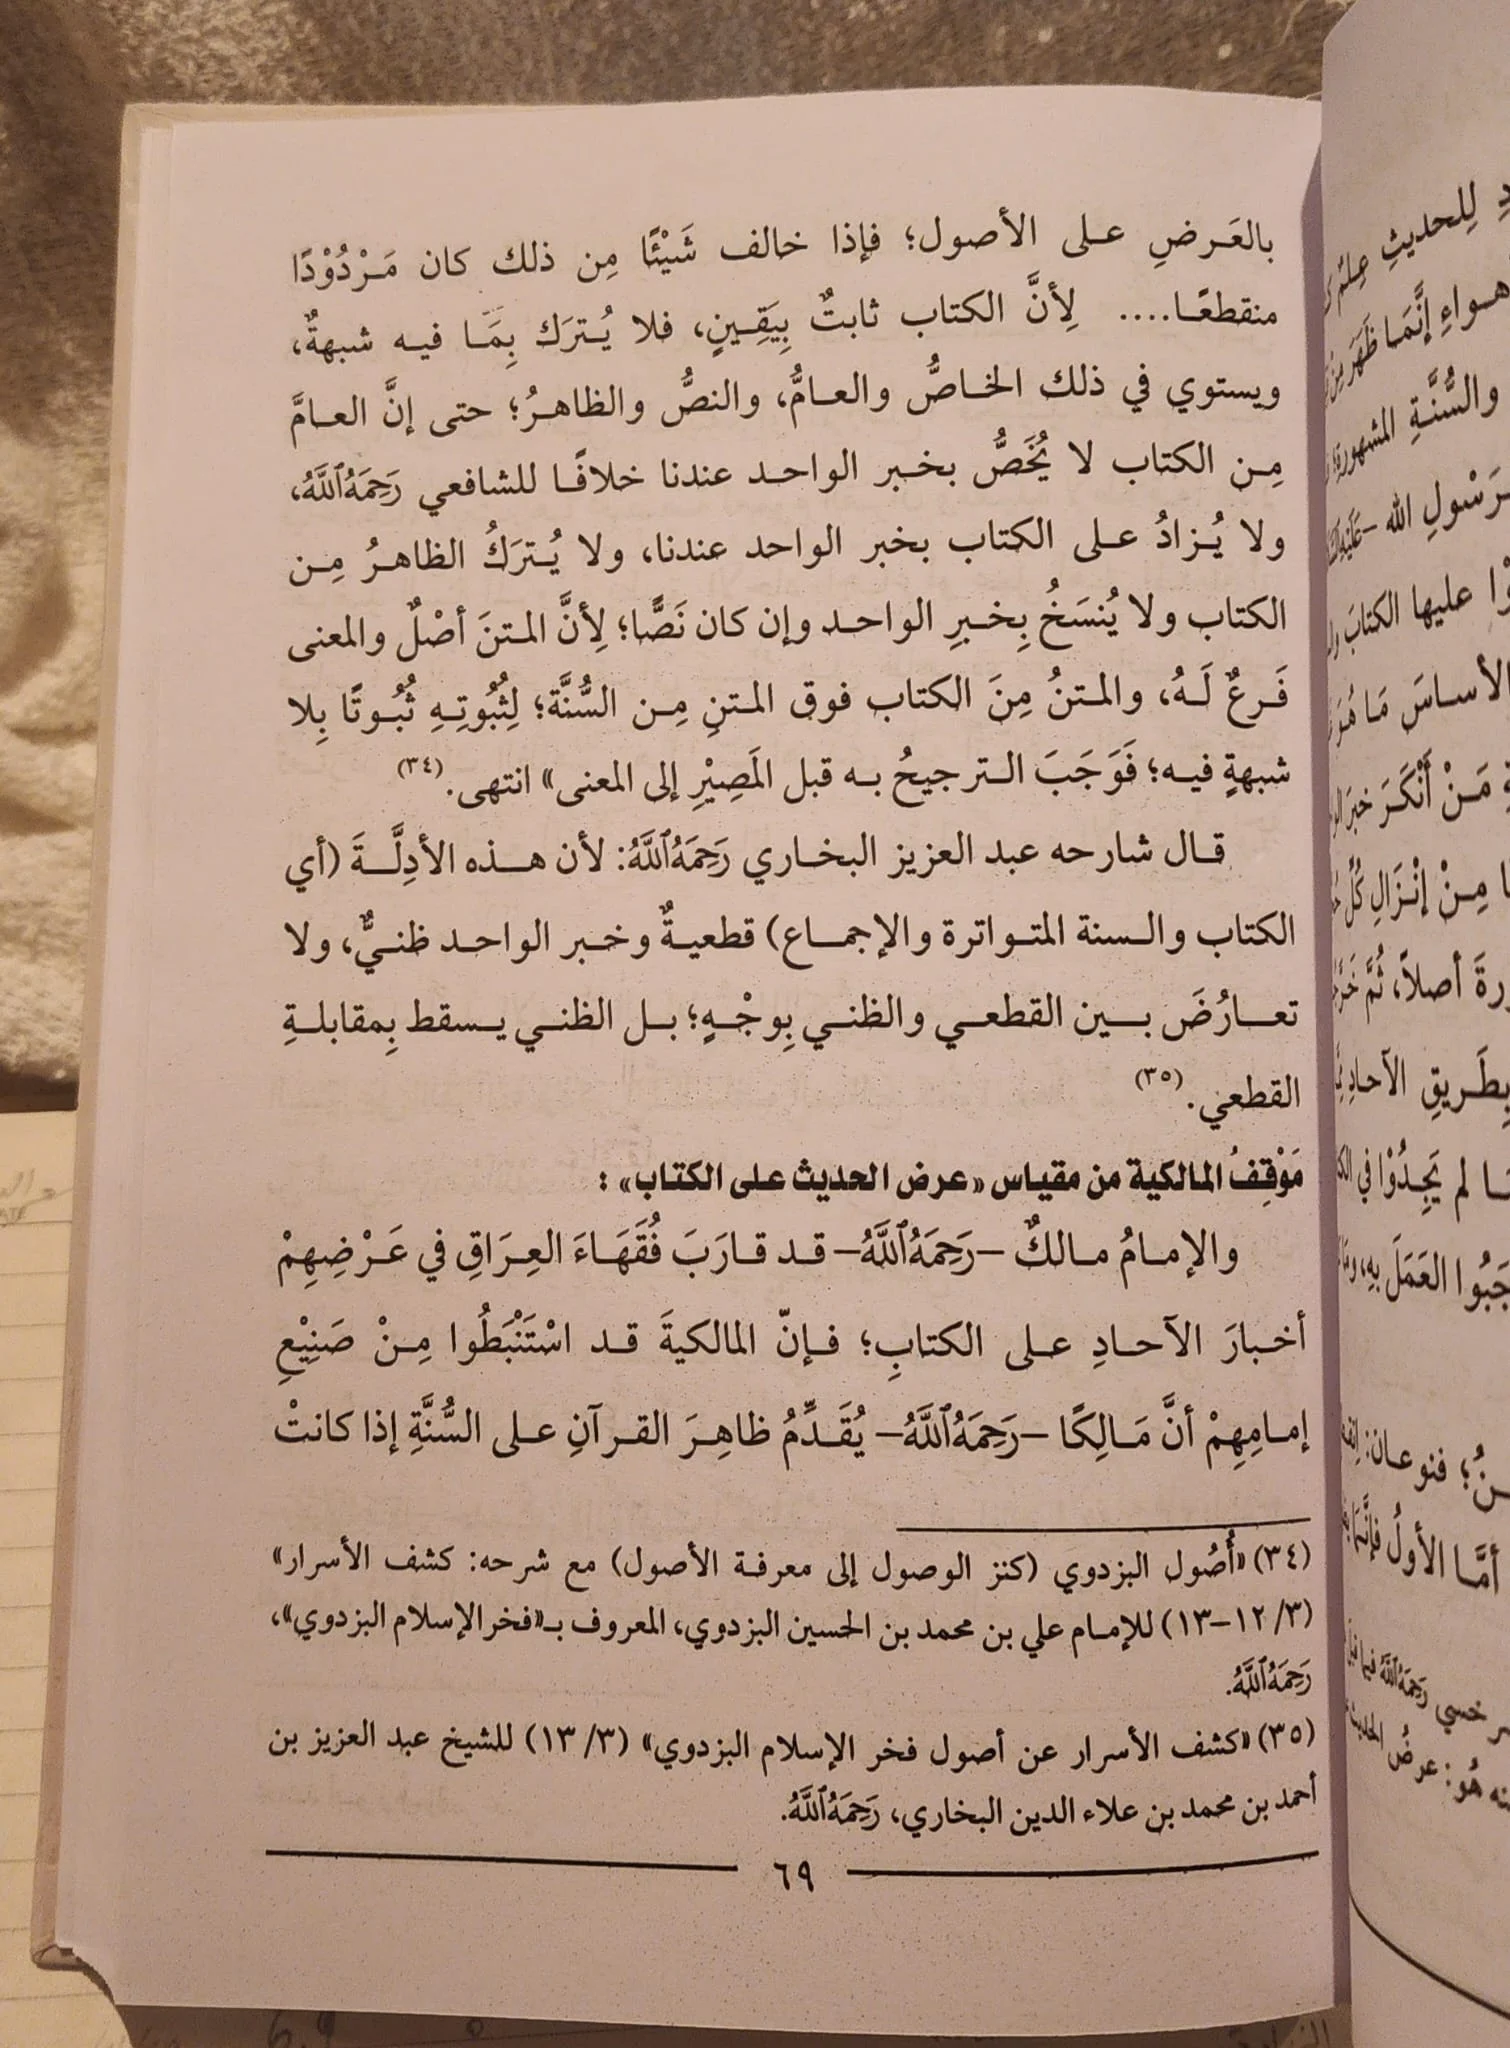 بالعَرضِ على الأصول؛ فإذا خالف شَيْئًا مِن ذلك كان مَرْدُوْدًا
منقطعًا.... لِأنَّ الكتاب ثابتٌ بِيَقِينٍ، فلا يُترَك بِمَا فيه شبهةٌ،
ويستوي في ذلك الخاصُّ والعامُّ، والنصُّ والظاهرُ؛ حتى إنَّ العامَّ
مِن الكتاب لا يُخَصُّ بخبر الواحد عندنا خلافًا للشافعي رَحِمَهُ اللَّهُ،
ولا يُزادُ على الكتاب بخبر الواحد عندنا، ولا يُترَكُ الظاهرُ مِن
الكتاب ولا يُنسَخُ بِخبرِ الواحد وإن كان نَصًّا؛ لِأنَّ المتنَ أصْلٌ والمعنى
فَرعٌ لَهُ، والمتنُ مِنَ الكتاب فوق المتنِ مِن السُّنَّة؛ لِثُبُوتِهِ ثُبُوتًا بِلا
شبهةٍ فيه؛ فَوَجَبَ الترجيحُ به قبل المَصِيْرِ إلى المعنى» انتهى.(٣٤)
قال شارحه عبد العزيز البخاري رَحِمَهُ اللَّهُ: لأن هذه الأدِلَّةَ (أي
الكتاب والسنة المتواترة والإجماع) قطعيةٌ وخبر الواحد ظنيٌّ، ولا
تعارُضَ بين القطعي والظني بِوجْهٍ؛ بل الظني يسقط بِمقابلةِ
القطعي.(٣٥)
مَوْقِفُ المالكية من مقياس «عرض الحديث على الكتاب»:
والإمامُ مالكٌ –رَحِمَهُ اللَّهُ– قد قارَبَ فُقَهَاءَ العِرَاقِ في عَرْضِهِمْ
أخبارَ الآحادِ على الكتابِ؛ فإنّ المالكيةَ قد اسْتَنْبَطُوا مِنْ صَنِيْعِ
إمامِهِمْ أنَّ مَالِكًا –رَحِمَهُ اللَّهُ– يُقَدِّمُ ظاهِرَ القرآنِ على السُّنَّةِ إذا كانتْ
(٣٤) «أُصُول البزدوي (كنز الوصول إلى معرفة الأصول) مع شرحه: كشف الأسرار»
(٣/ ١٢–١٣) للإمام علي بن محمد بن الحسين البزدوي، المعروف بـ«فخر الإسلام البزدوي»،
رَحِمَهُ اللَّهُ.
(٣٥) «كشف الأسرار عن أصول فخر الإسلام البزدوي» (٣/ ١٣) للشيخ عبد العزيز بن
أحمد بن محمد بن علاء الدين البخاري، رَحِمَهُ اللَّهُ.
٦٩